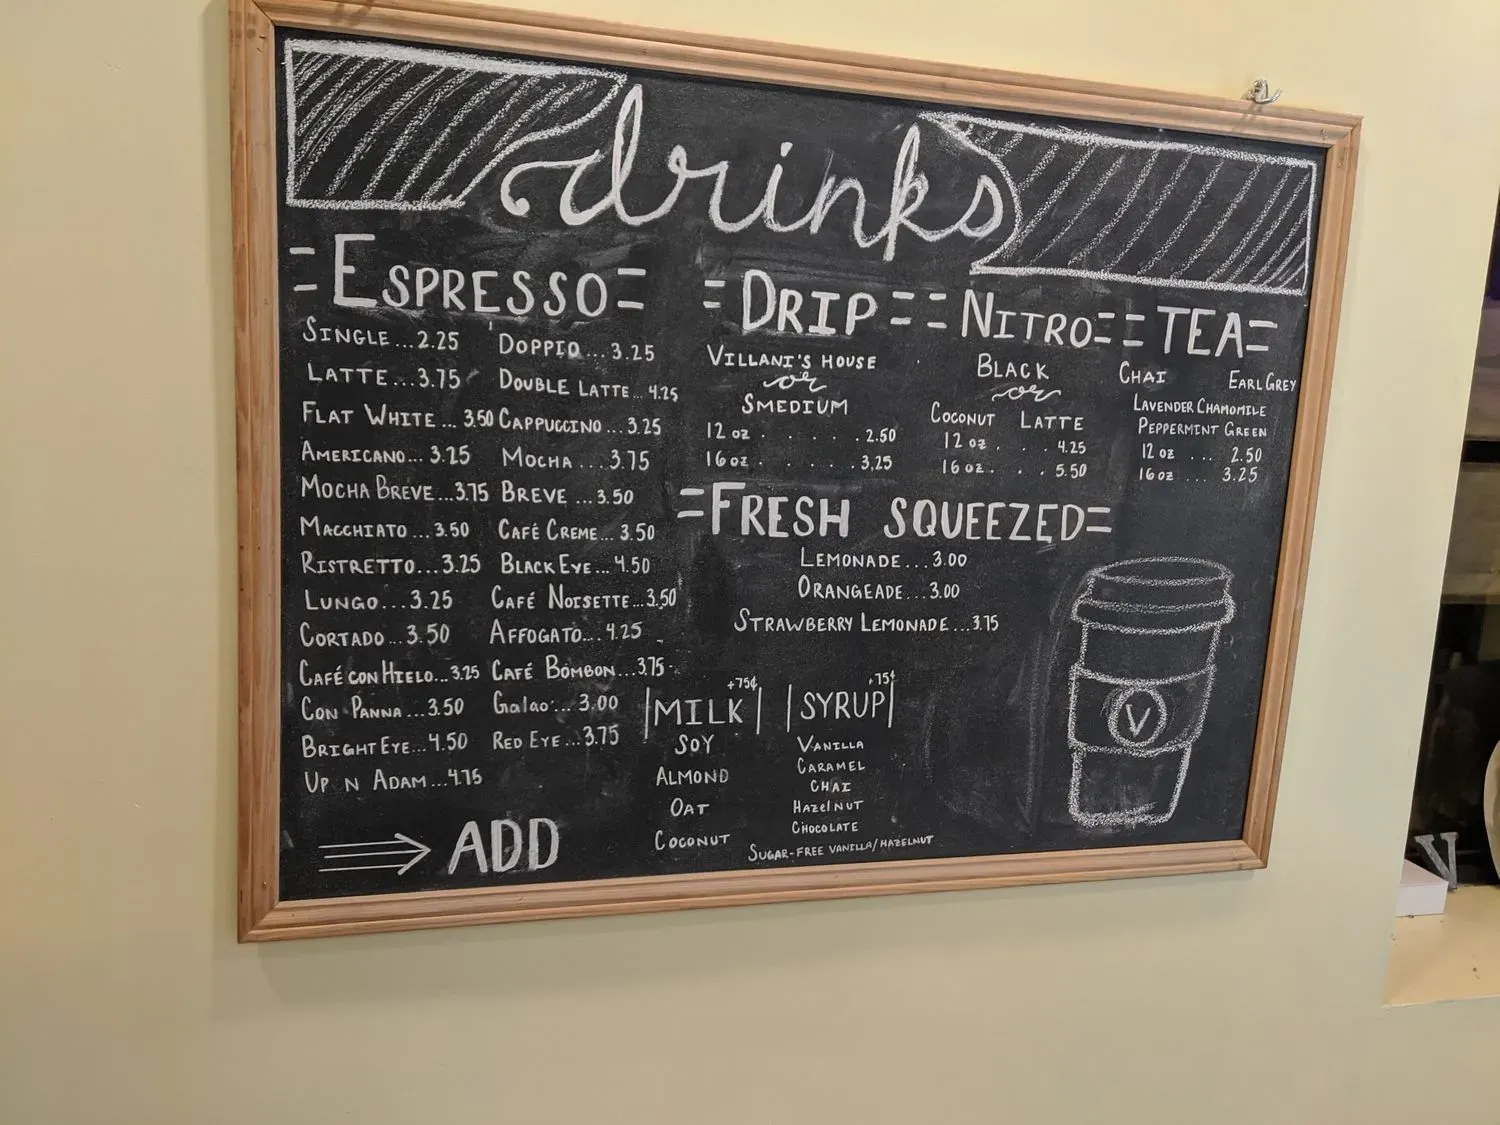 drinks
= ESPRESSO =
SINGLE...2.25
LATTE...3.75
FLAT WHITE...3.50
AMERICANO...3.25
MOCHA BREVE...3.75
MACCHIATO...3.50
RISTRETTO...3.25
LUNGO...3.25
CORTADO...3.50
CAFÉ CON HIELO...3.25
CON PANNA...3.50
BRIGHT EYE...4.50
UP N ADAM...4.75
DOPPIO...3.25
DOUBLE LATTE...4.25
CAPPUCCINO...3.25
MOCHA...3.75
BREVE...3.50
CAFÉ CREME...3.50
BLACK EYE...4.50
CAFÉ NOISETTE...3.50
AFFOGATO...4.25
CAFÉ BOMBON...3.75
Galao...3.00
RED EYE...3.75
= DRIP =
VILLANI'S HOUSE
or
SMEDIUM
12 oz . . . . . 2.50
16 oz . . . . . 3.25
= NITRO =
BLACK
or
COCONUT LATTE
12 oz . . . 4.25
16 oz . . . 5.50
= TEA =
CHAI EARL GREY
LAVENDER CHAMOMILE
PEPPERMINT GREEN
12 oz ... 2.50
16 oz ... 3.25
= FRESH SQUEEZED =
LEMONADE...3.00
ORANGEADE...3.00
STRAWBERRY LEMONADE...3.75
ADD
+75¢
|MILK|
SOY
ALMOND
OAT
COCONUT
+75¢
|SYRUP|
VANILLA
CARAMEL
CHAI
HazelNUT
CHOCOLATE
SUGAR-FREE VANILLA/HAZELNUT
V
V